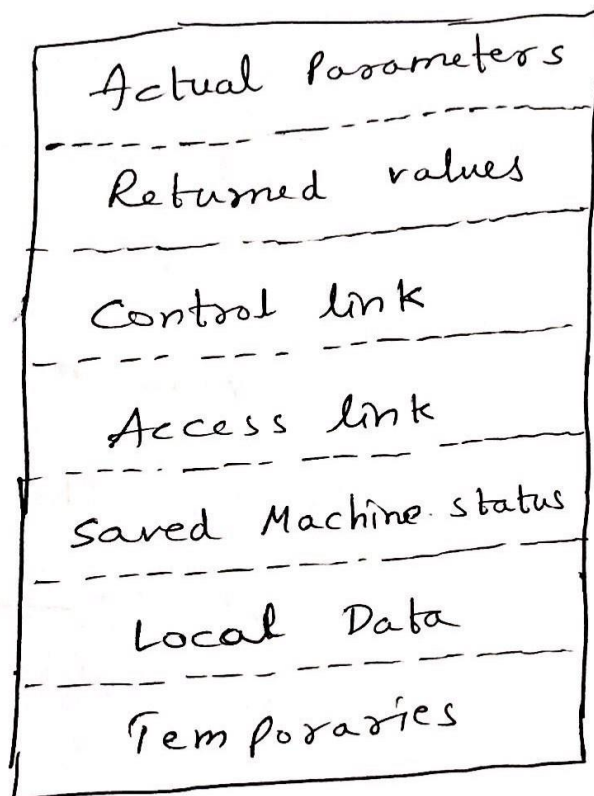 Actual Parameters
Returned values
Control link
Access link
Saved Machine status
Local Data
Temporaries